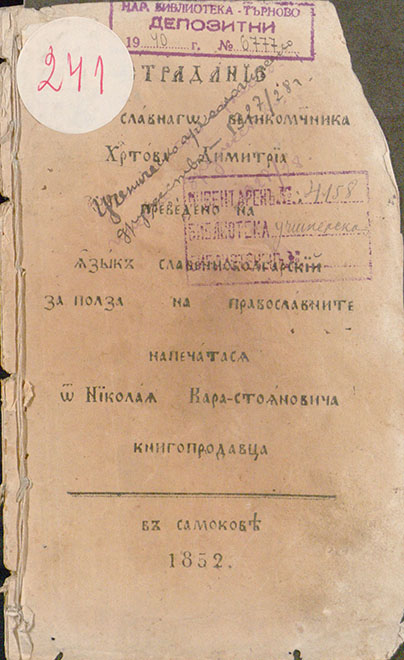 НАР. БИБЛИОТЕКА - ТЪРНОВО
ДЕПОЗИТНИ
19 40 г. №
241
СТРАДАНІЕ
славнагѡ великомч҃ника
Хрⷭ҇това Димитріа
преведено на
ѧзыкъ славеноболгарскій
за полза на православните
напечатасѧ
ѿ Нїколаѧ Кара-Стоѧновича
книгопродавца
въ самоковѣ
1852.
ИНВЕНТАРЕНЪ № 4158
БИБЛИОТЕКА